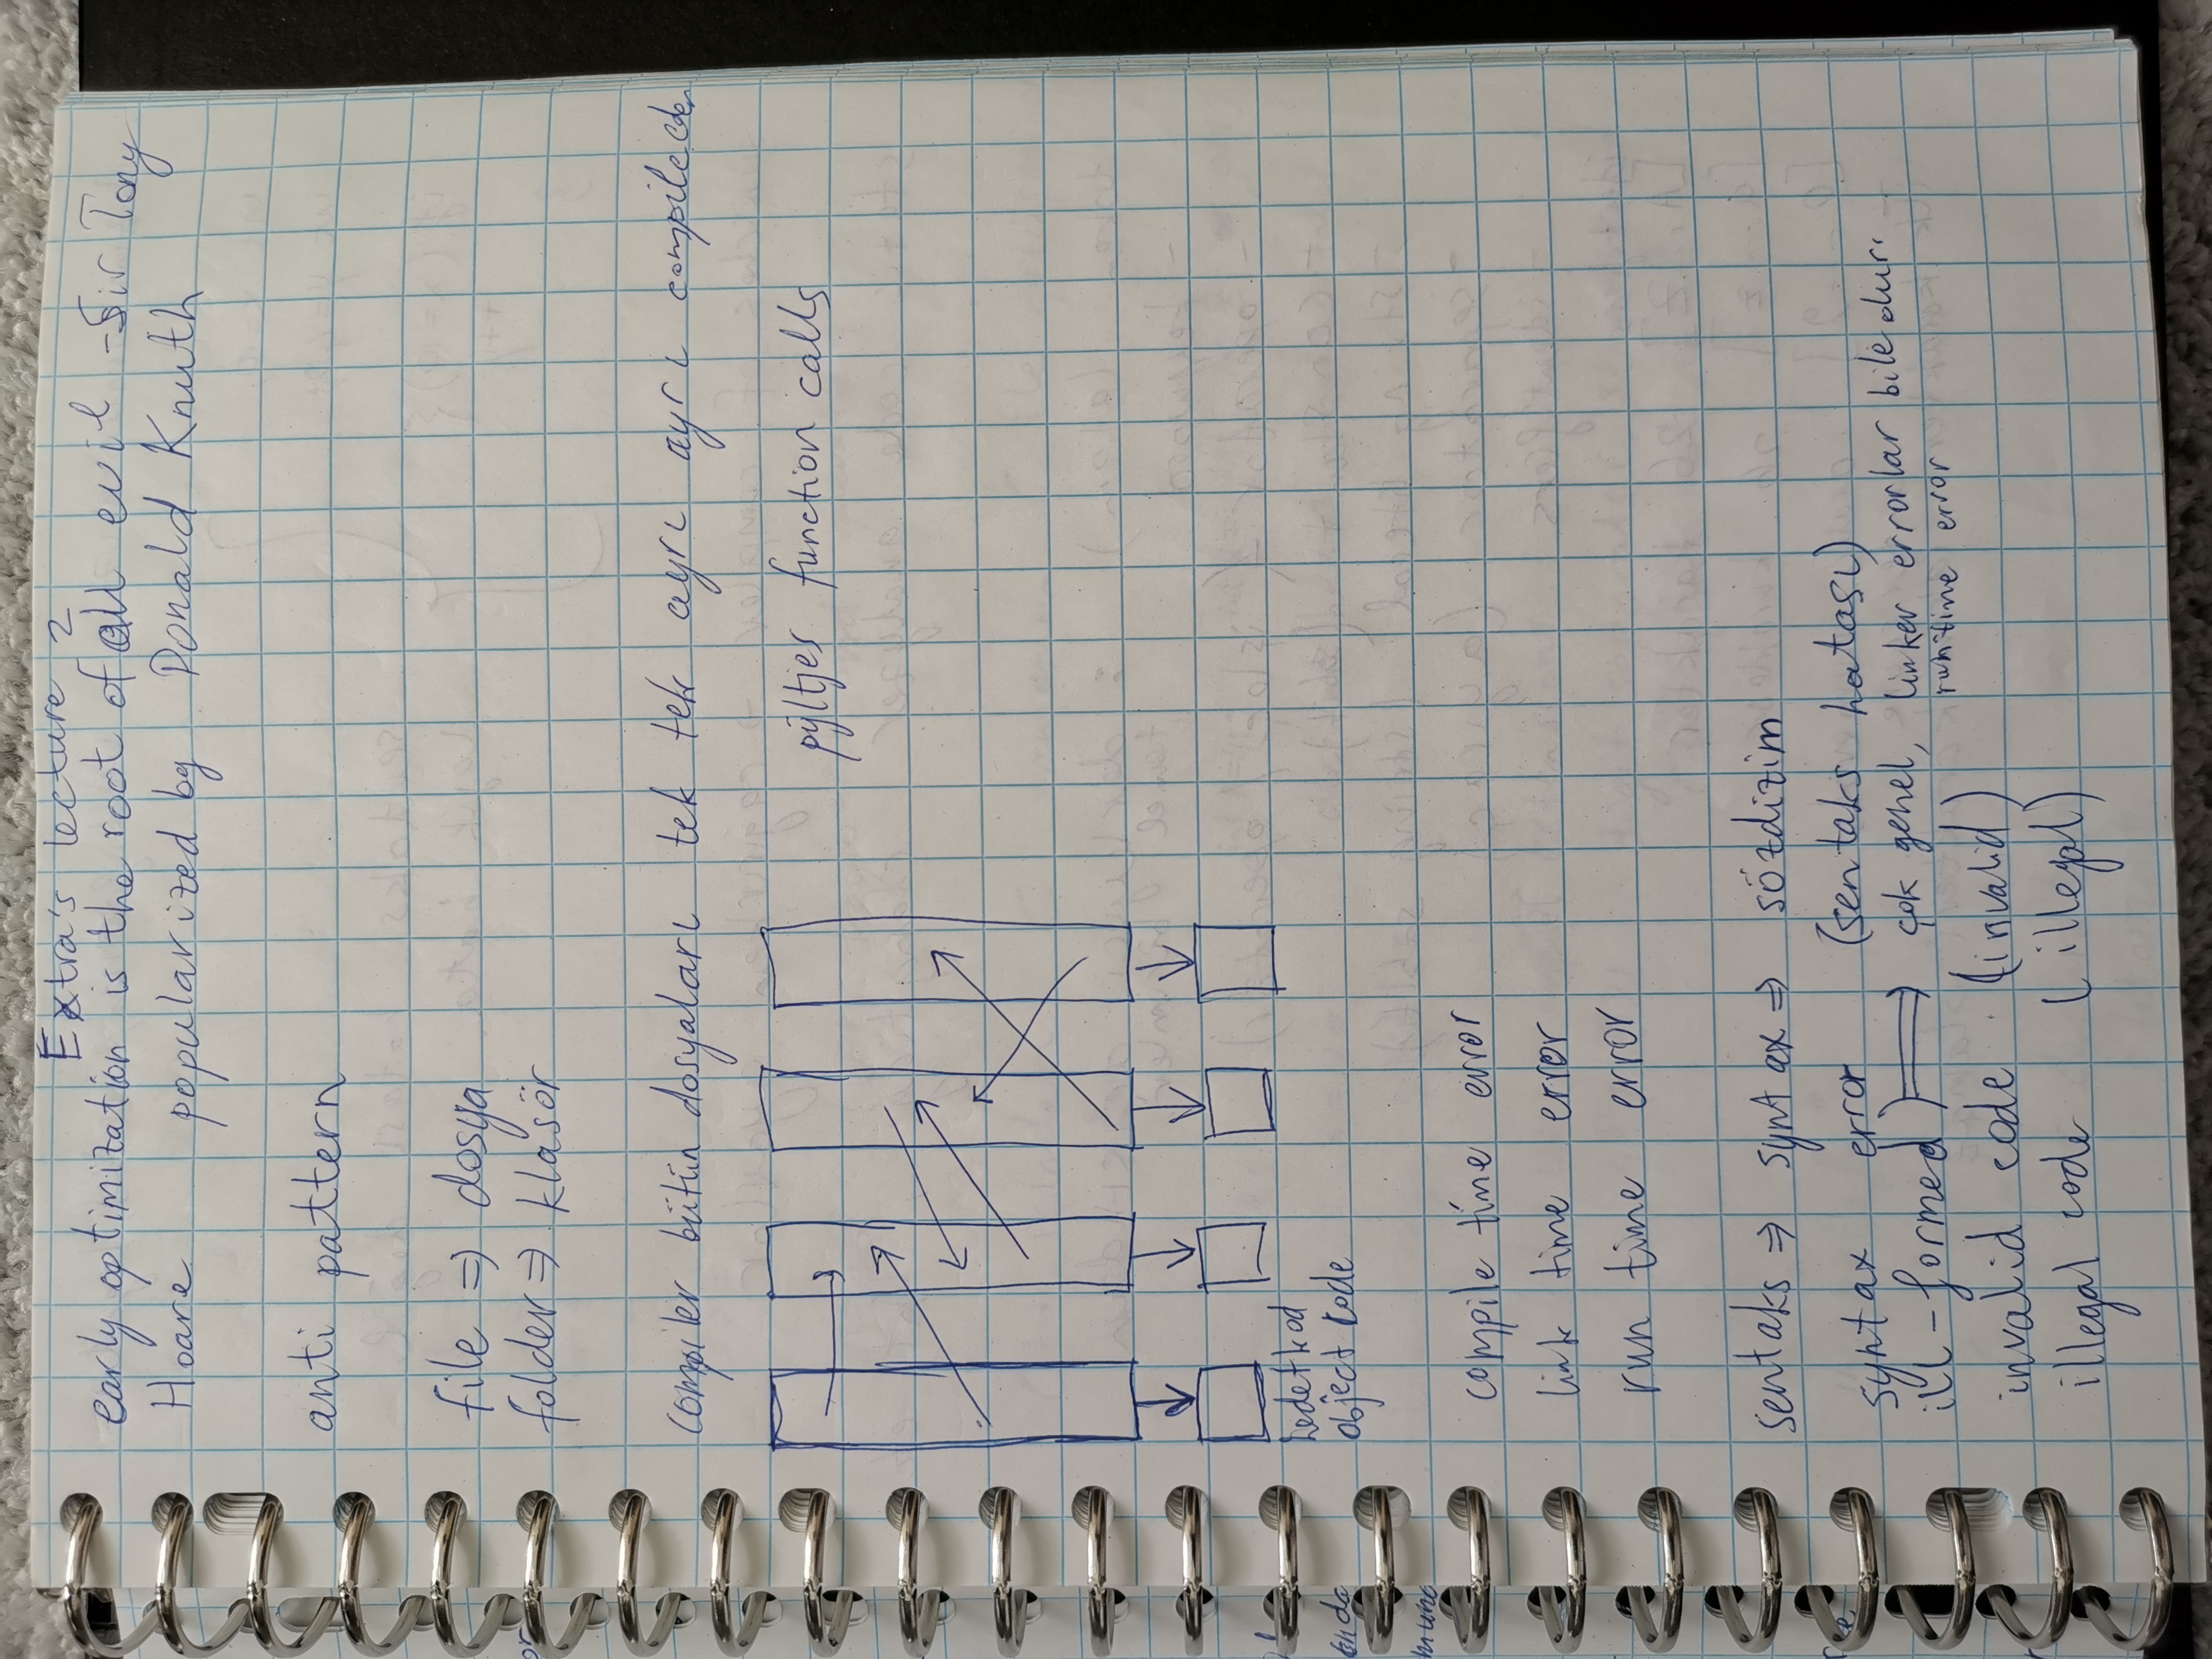 Extra's lecture 2
early optimization is the root of all evil - Sir Tony
Hoare popularized by Donald Knuth
anti pattern
file => dosya
folder => klasör
compiler bütün dosyaları tek tek ayrı ayrı compile eder
pijltjes function calls
hedef kod
object code
compile time error
link time error
run time error
sentaks => syntax => sözdizim
syntax error (sentaks hatası)
ill-formed) => çok genel, linker errorlar bile olur.
runtime error
invalid code (invalid)
illegal code (illegal)